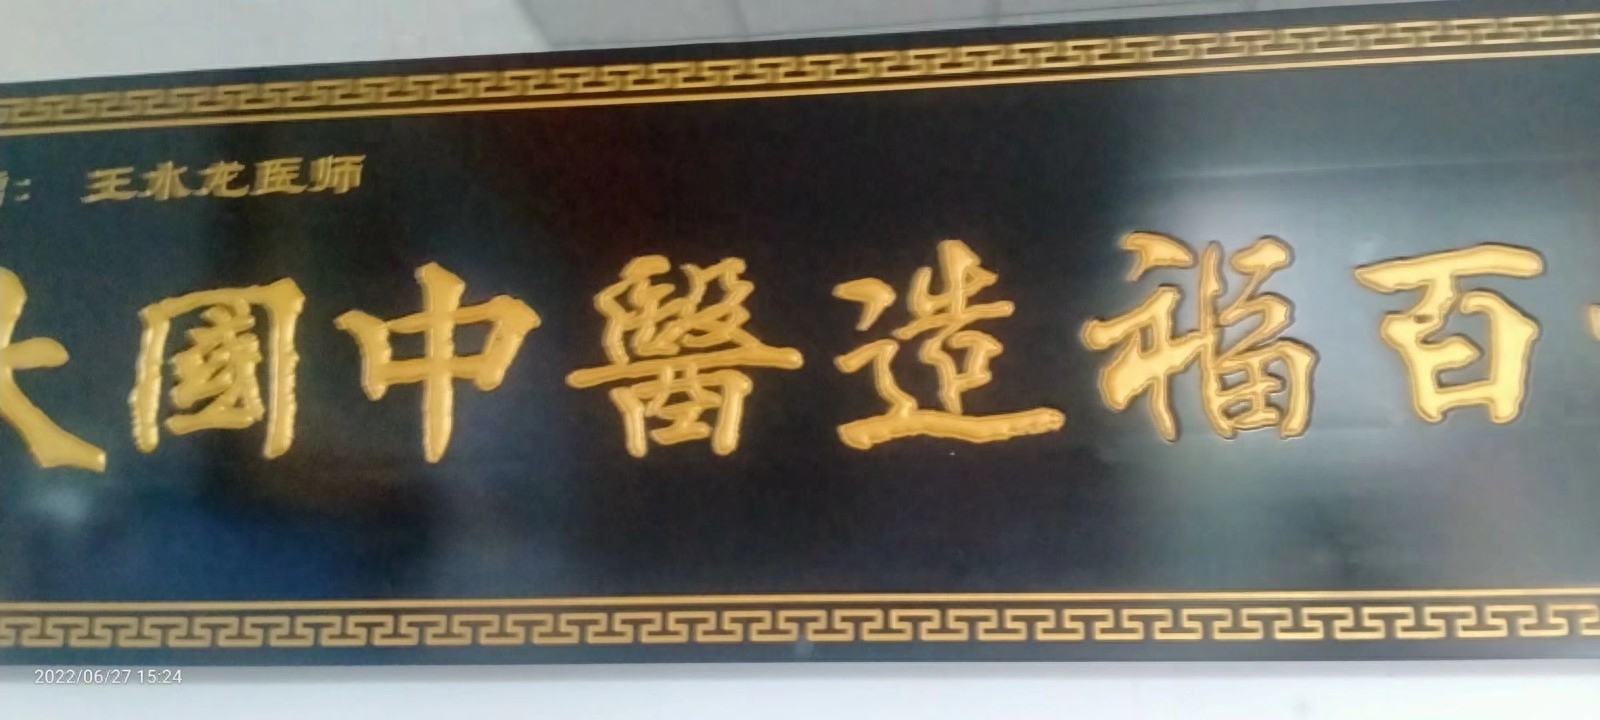 王水龙医师
大國中醫造福百
2022/06/27 15:24